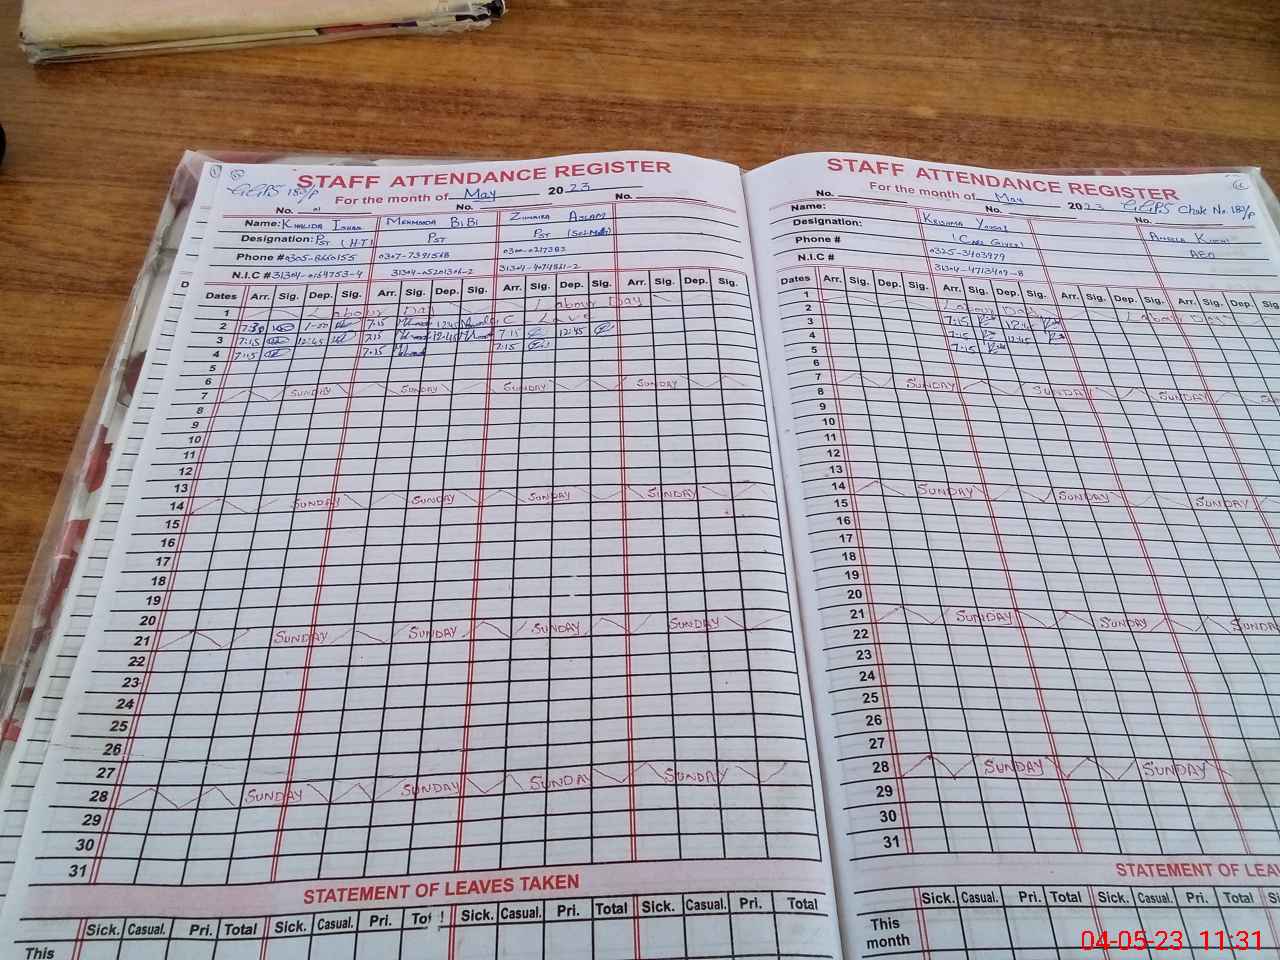 STAFF ATTENDANCE REGISTER
GGPS 18/P
For the month of May 2023
No. No. No.
Name: KHALIDA MEHMOODA BIBI ZUMAIRA ASLAM
Designation: PST (H.T) PST PST
Phone # 0305-8660155 0307-7391568 0300-0217383
N.I.C # 31304-0169753-4 31304-0520130b-2 31304-4074861-2
Dates Arr. Sig. Dep. Sig. Arr. Sig. Dep. Sig. Arr. Sig. Dep. Sig. Arr. Sig. Dep. Sig.
1 Labour Day Labour Day
2 7:30 1-00 7:15 12:45 C Lave
3 7:15 12:45 7:15 12:45 7:15 12:45
4 7:15 7:15 7:15
5
6
7 SUNDAY SUNDAY SUNDAY SUNDAY
8
9
10
11
12
13
14 SUNDAY SUNDAY SUNDAY SUNDAY
15
16
17
18
19
20
21 SUNDAY SUNDAY SUNDAY SUNDAY
22
23
24
25
26
27
28 SUNDAY SUNDAY SUNDAY SUNDAY
29
30
31
STATEMENT OF LEAVES TAKEN
Sick. Casual. Pri. Total Sick. Casual. Pri. Total Sick. Casual. Pri. Total Sick. Casual. Pri. Total
This
STAFF ATTENDANCE REGISTER
For the month of May 2023 GGPS Chak No. 18/P
No. No. No.
Name: KRISHMA ANGELA
Designation: (Care Giver) AEO
Phone # 0325-3403979
N.I.C # 31304-4713409-8
Dates Arr. Sig. Dep. Sig. Arr. Sig. Dep. Sig. Arr. Sig.
1 Labour Day Labour Day
2 7:15 12:45
3 7:15 12:45
4 7:15
5
6
7 SUNDAY SUNDAY SUNDAY
8
9
10
11
12
13
14 SUNDAY SUNDAY SUNDAY
15
16
17
18
19
20
21 SUNDAY SUNDAY SUNDAY
22
23
24
25
26
27
28 SUNDAY SUNDAY
29
30
31
STATEMENT OF LEA
This month Sick. Casual. Pri. Total Sick. Casual. Pri. Total
04-05-23 11:31